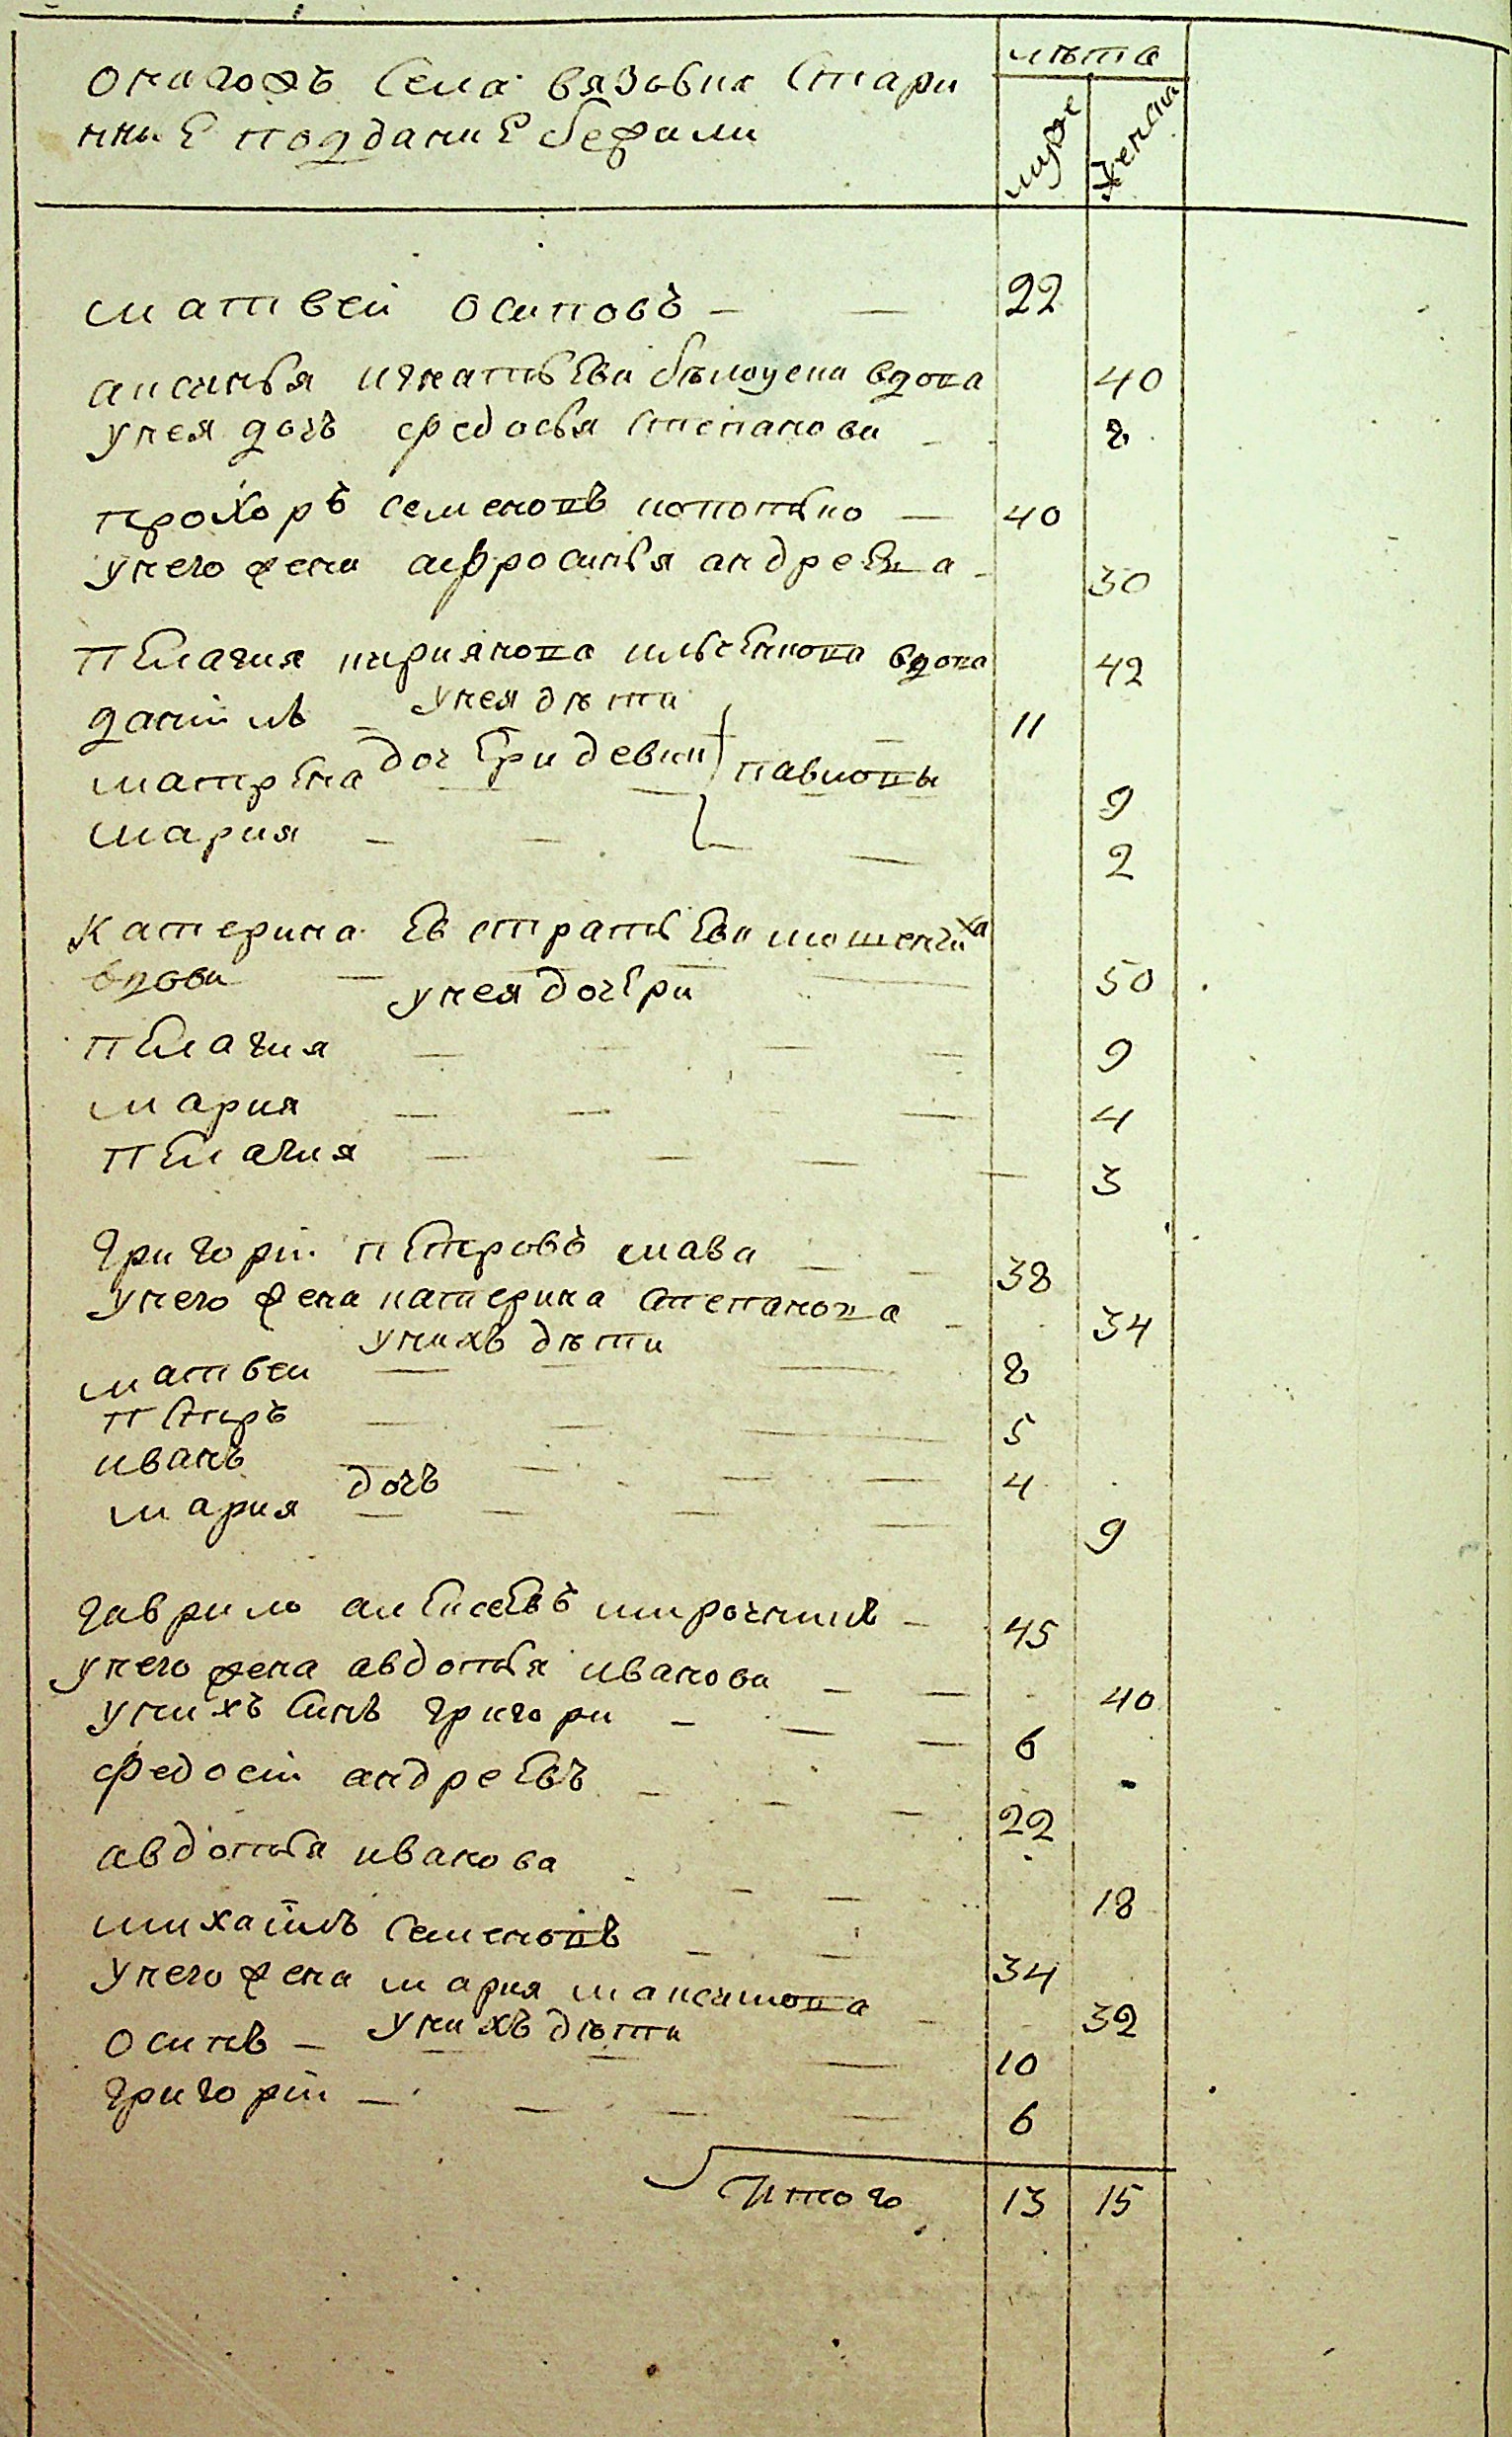 онагожъ села вязовка стари
нныеподдание бежали
лѣта
муже
женска
матвеи осиповъ 22
аксинья игнатьева вдова 40
унея дочь федосья степанова 8
прохоръ семеновъ 40
унего жена афросинья андреева 30
пелагия кириянова вдова 42
унея дѣти
данiилъ 11
дочери девки
матрена павловы 9
мария 2
катерина евстратьева
вдова 50
унея дочери
пелагия 9
мария 4
пелагия 3
григорiи петровъ 38
унего жена катерина степанова 34
унихъ дѣти
матвеи 8
петръ 5
иванъ 4
дочь
мария 9
гаврило алексеевъ 45
унего жена авдотья иванова 40
унихъ синъ григори 6
федосiи андреевъ 22
авдотья иванова 18
михаiлъ семеновъ 34
унего жена мария максимова 32
унихъ дѣти
осипъ 10
григорiи 6
Итого 13 15